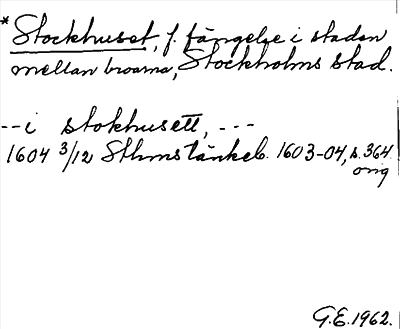 *Stockhuset, f. fängelse i staden
mellan broarna, Stockholms stad.
-- i stokhusett, ---
1604 3/12 Sthms tänkeb. 1603-04, s. 364
orig
G.E. 1962.